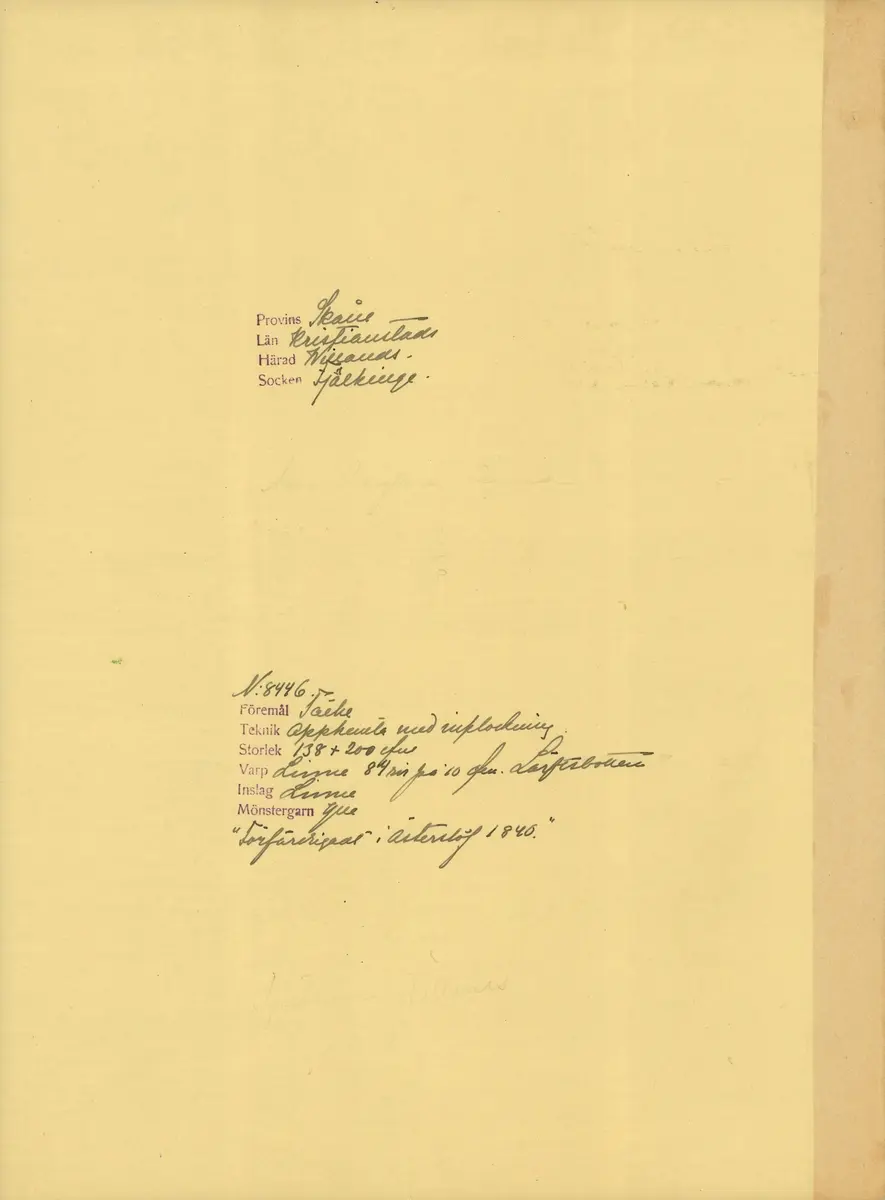 Provins Skåne
Län Kristianstads
Härad Willands.
Socken Fjälkinge.
N:8446.
Föremål Täcke
Teknik Upphämta med inplockning.
Storlek 138 + 200 cm
Varp Linne 84 rör på 10 cm. Lärftsbotten
Inslag Linne
Mönstergarn Ylle
"Förfärdigad i Österslöf 1840."